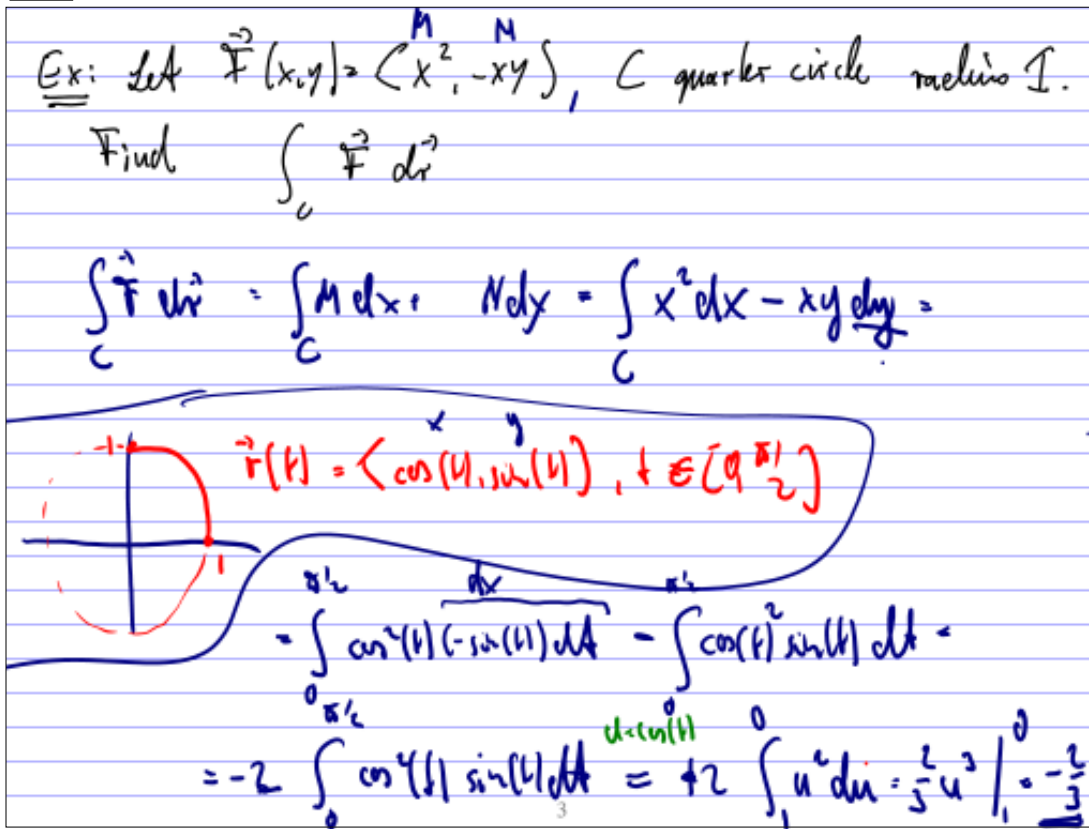 M N
Ex: Let F⃗(x,y) = ⟨x², -xy⟩, C quarter circle radius 1.
Find ∫_C F⃗ dr⃗
∫_C F⃗ dr⃗ = ∫_C M dx + N dy = ∫_C x² dx - xy dy =
x y
1 r⃗(t) = ⟨cos(t), sin(t)⟩, t ∈ [0, π/2]
1
dx
= ∫_0^{π/2} cos²(t) (-sin(t)) dt - ∫_0^{π/2} cos(t)² sin(t) dt =
u=cos(t)
= -2 ∫_0^{π/2} cos²(t) sin(t) dt = +2 ∫_1^0 u² du = 2/3 u³ |_1^0 = -2/3
3